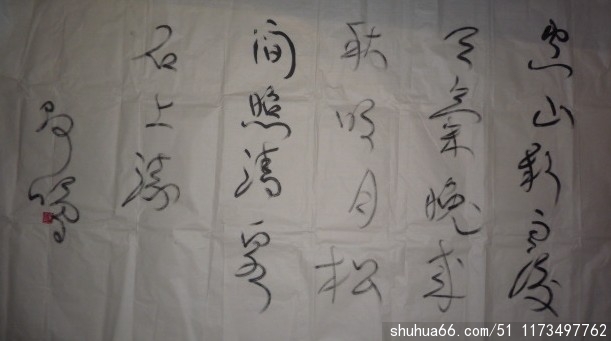 空山新雨後
天氣晚来
秋明月松
間照清泉
石上流
shuhua66.com/51 1173497762